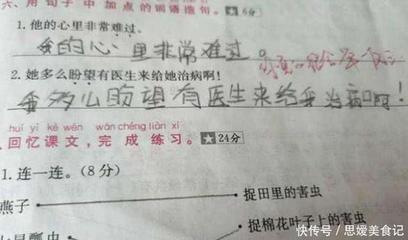 六、用句子中加点的词语造句。★6分
1.他的心里非常难过。
我的心里非常难过。
2.她多么盼望有医生来给她治病啊!
我多么盼望有医生来给我治病啊!
huí yì kè wén wán chéng liàn xí
回忆课文,完成练习。★24分
1.连一连。(8分)
燕子 捉田里的害虫
七星瓢虫 捉棉花叶子上的害虫
快传号/思媛美食记